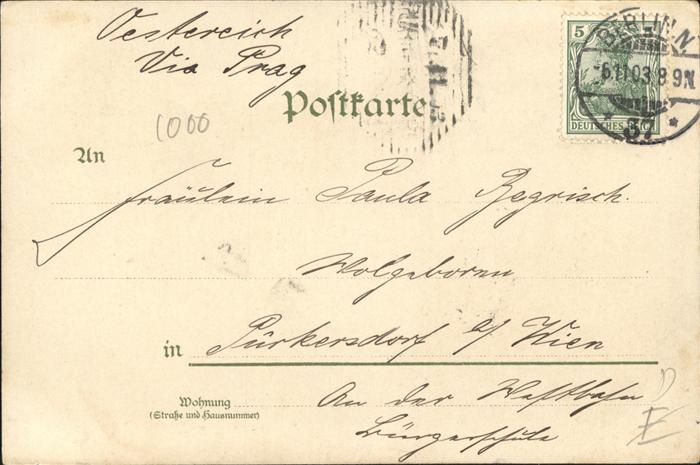 Oestereich
Via Prag
Postkarte
1000
5
DEUTSCHES REICH
BERLIN N
-6.11.03.8-9N.
* 37 *
An
Fräulein Paula Begrisch.
Wolgeboren
in Purkersdorf b/ Wien
Wohnung
(Straße und Hausnummer)
An der Westbahn
Bürgerschule